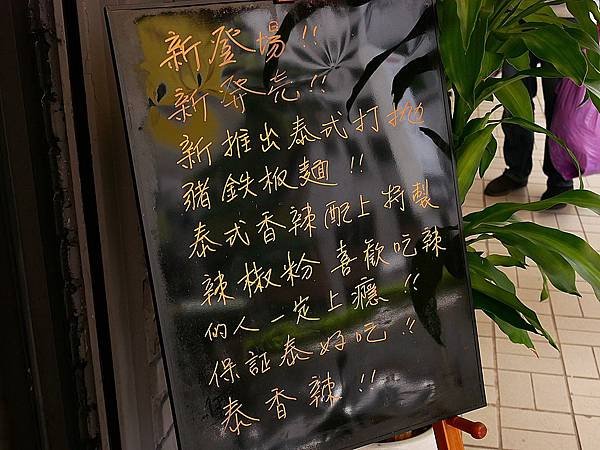 新登場!!
新発売!!
新推出泰式打抛
豬鉄板麵!!
泰式香辣配上特製
辣椒粉 喜歡吃辣
的人一定上癮!!
保証泰好吃!!
泰香辣!!